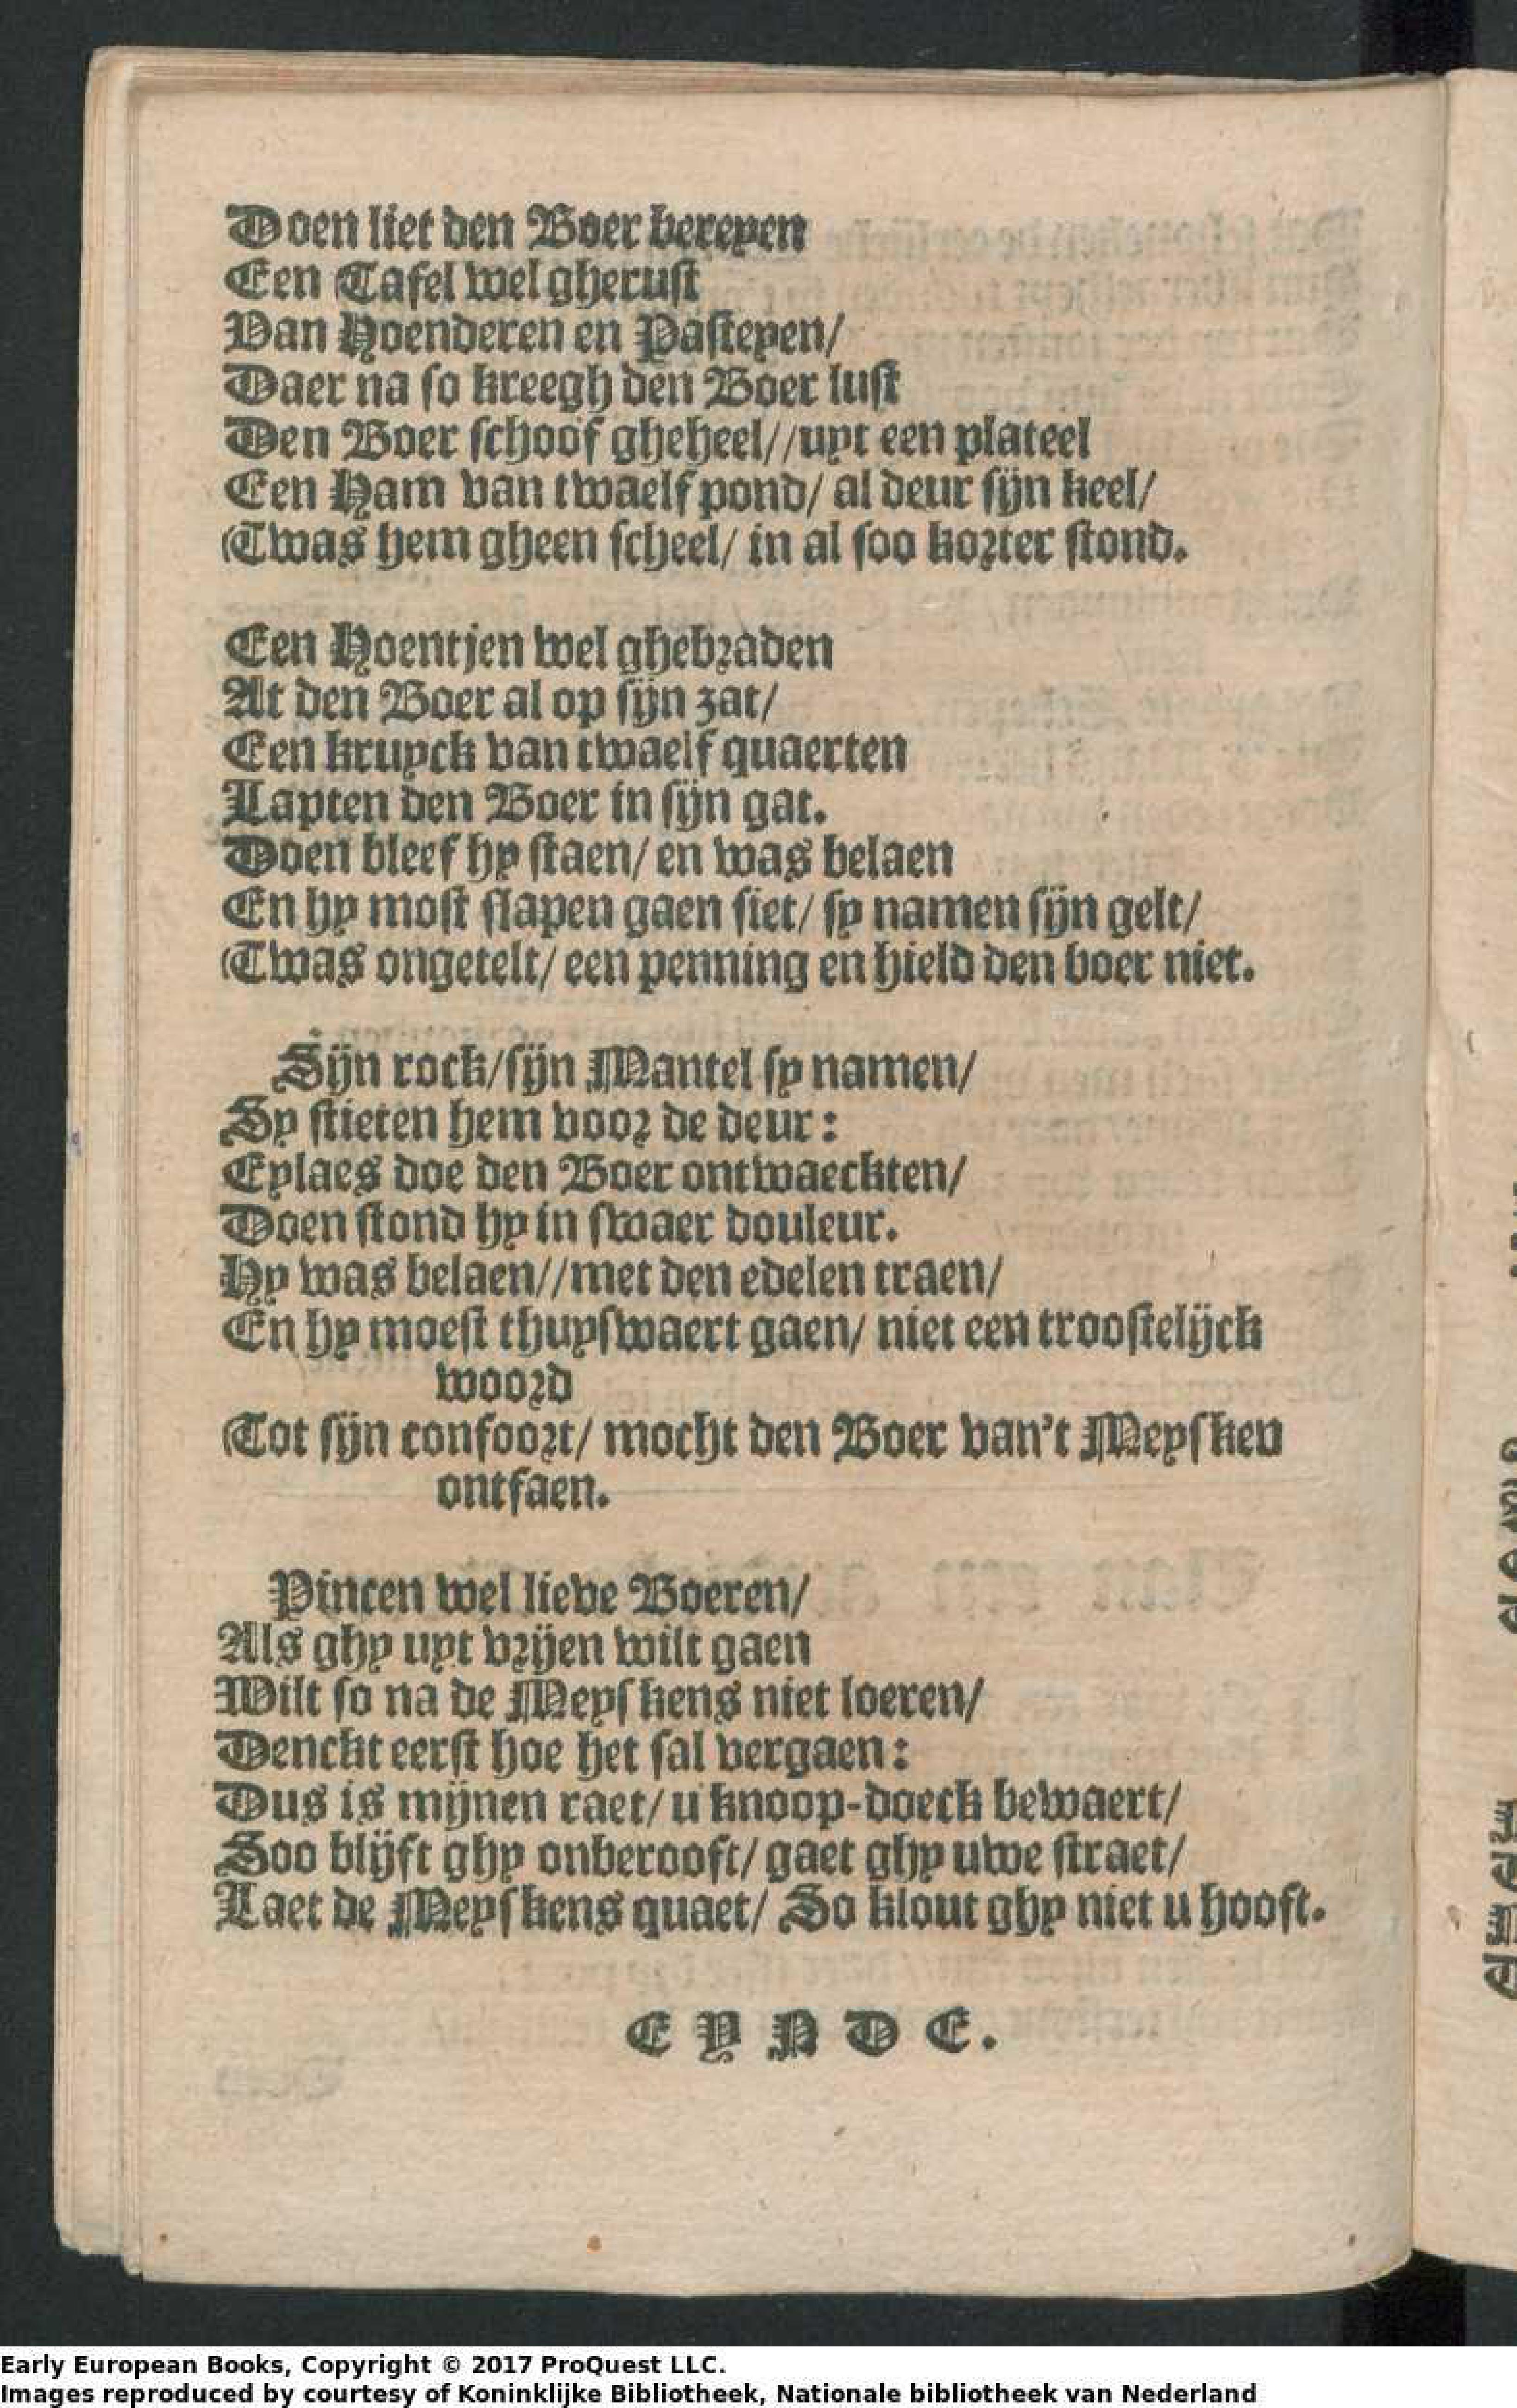 Doen liet den Boer bereyen
Een Tafel wel gherust
Van Hoenderen en Pasteyen/
Daer na so kreegh den Boer lust
Den Boer schoof gheheel//uyt een plateel
Een Ham van twaelf pond/ al deur sijn keel/
Twas hem gheen scheel/ in al soo korter stond.
Een Hoentjen wel ghebraden
At den Boer al op sijn zat/
Een kruyck van twaelf quaerten
Lapten den Boer in sijn gat.
Doen bleef hy staen/ en was belaen
En hy most slapen gaen siet/ sy namen sijn gelt/
Twas ongetelt/ een penning en hield den boer niet.
Sijn rock/sijn Mantel sy namen/
Sy stieten hem voor de deur:
Eylaes doe den Boer ontwaeckten/
Doen stond hy in swaer douleur.
Hy was belaen//met den edelen traen/
En hy moest thuyswaert gaen/ niet een troostelijck
woord
Tot sijn confoort/ mocht den Boer van't Meysken
ontfaen.
Pincen wel lieve Boeren/
Als ghy uyt vrijen wilt gaen
Wilt so na de Meyskens niet loeren/
Denckt eerst hoe het sal vergaen:
Dus is mijnen raet/ u knoop-doeck bewaert/
Soo blijft ghy onberooft/ gaet ghy uwe straet/
Laet de Meyskens quaet/ So klout ghy niet u hooft.
EYNDE.
Early European Books, Copyright © 2017 ProQuest LLC.
Images reproduced by courtesy of Koninklijke Bibliotheek, Nationale bibliotheek van Nederland